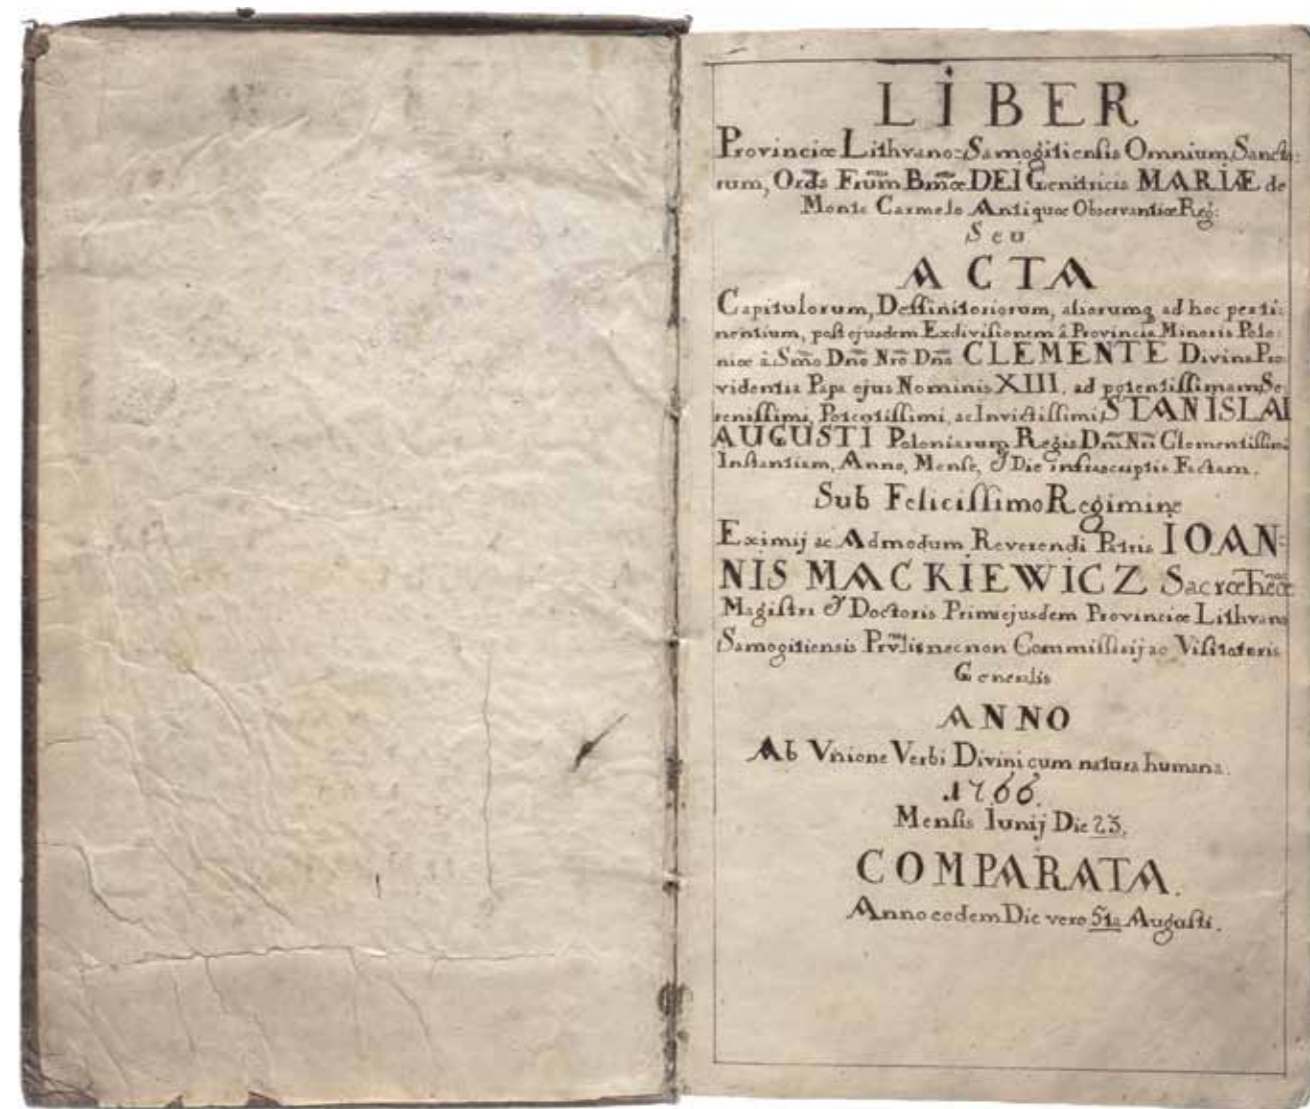 LIBER
Provinciæ Lithvano-Samogitiensis Omnium Sancto:
rum, Ordīs Frūm Bmæ DEI Genitricis MARIÆ de
Monte Carmelo Antiquæ Observantiæ Reg:
Seu
ACTA
Capitulorum, Deffinitoriorum, aliorumq ad hoc perti:
nentium, post ejusdem Exdivisionem â Provincia Minoris Polo:
niæ â Smo Dno Nro Dno CLEMENTE Divina Pro
videntia Papa ejus Nominis XIII. ad potentissimam Se
renissimi, Potentissimi, ac Invictissimi, STANISLAI
AUGUSTI Poloniarum Regis Dni Nri Clementissimi
Instantiam, Anno, Mense, & Die infrascriptis Factam.
Sub Felicissimo Regimine
Eximij ac Admodum Reverendi Patris IOAN-
NIS MACKIEWICZ Sacræ Theæ
Magistri & Doctoris Primi ejusdem Provinciæ Lithvano
Samogitiensis Prvlis necnon Commissarij ac Visitatoris
Generalis
ANNO
Ab Vnione Verbi Divini cum natura humana.
1766.
Mensis Iunij Die 23.
COMPARATA.
Anno eodem Die vero 51a Augusti.